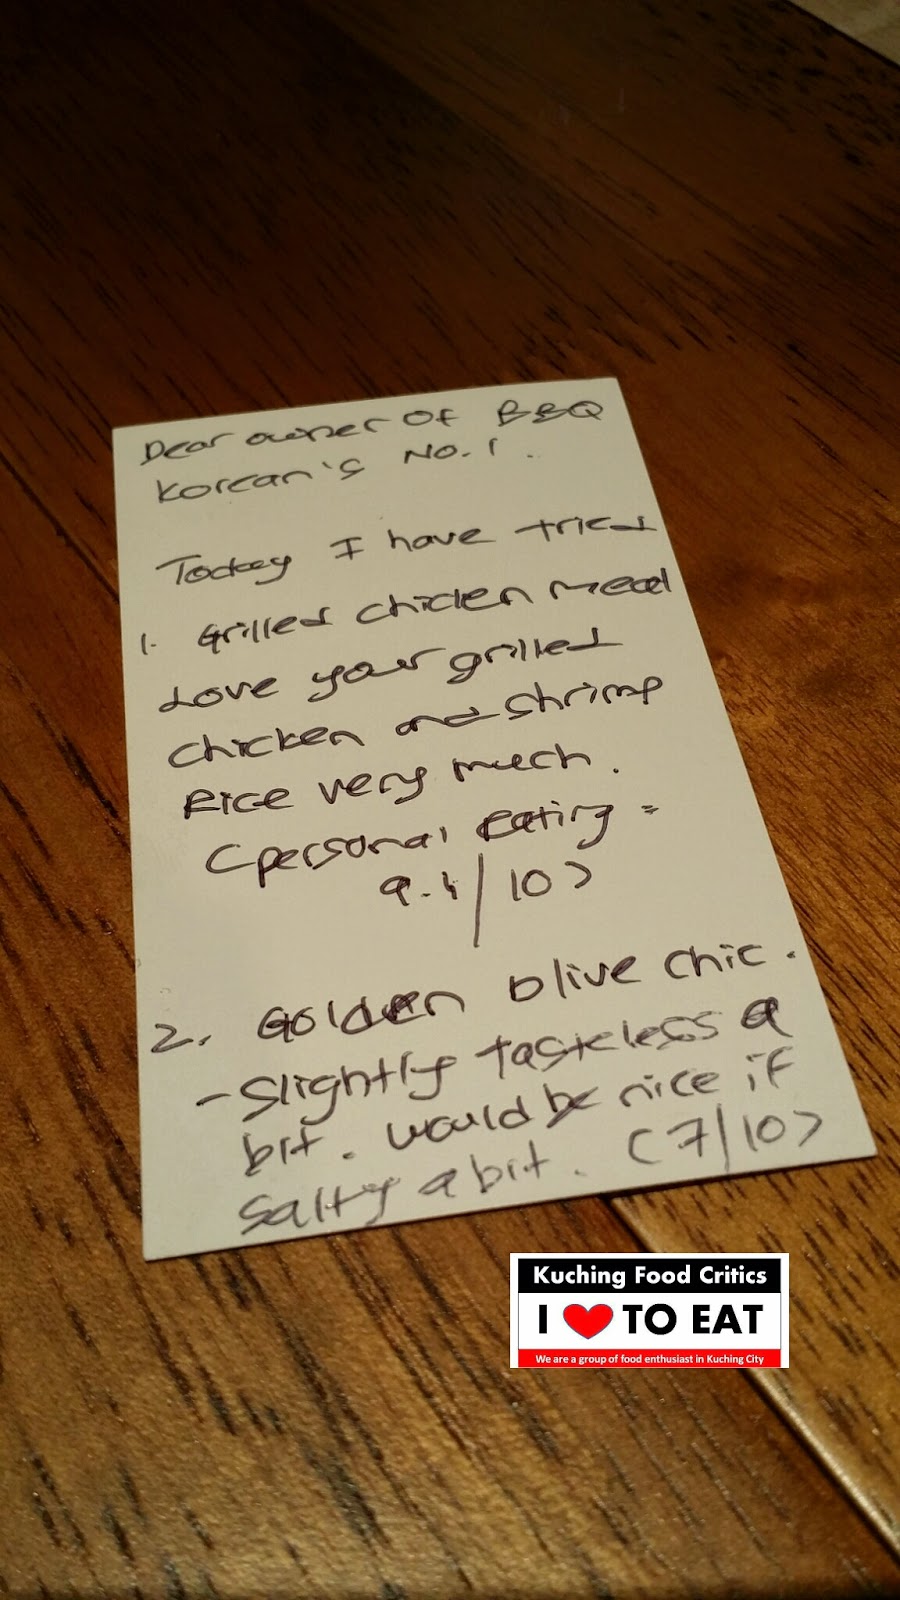 Dear owner of BBQ
Korean's No. 1.
Today I have tried
1. Grilled chicken meal
Love your grilled
chicken and shrimp
Rice very much.
(personal Rating =
9.4/10)
2. Golden Olive Chic.
- Slightly tasteless a
bit. would be nice if
Salty a bit. (7/10)
Kuching Food Critics
I ❤ TO EAT
We are a group of food enthusiast in Kuching City